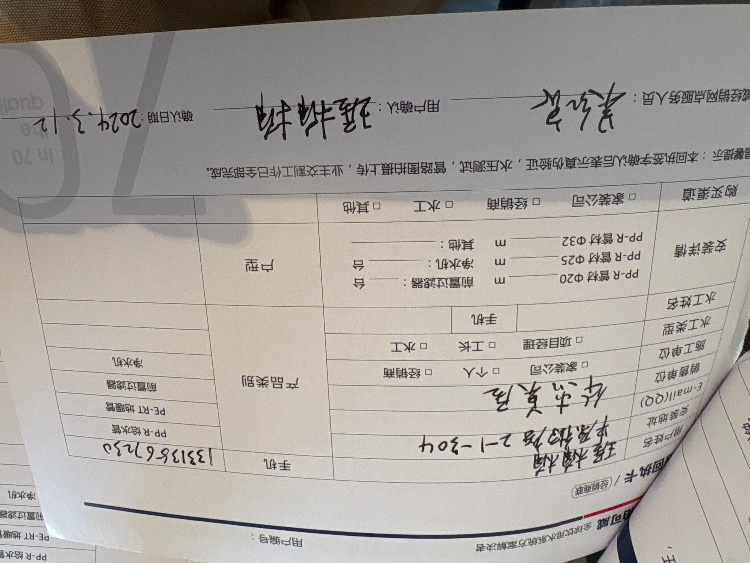 全球饮用水系统方案解决者
用户编号：
回执卡 / 经销商联
用户姓名
手机 13313567230
安装地址 2-1-304
E-mail(QQ)
产品类别
PP-R 给水管
PE-RT 地暖管
前置过滤器
净水机
销售单位 □ 家装公司 □ 个人 □ 经销商
施工单位
水工类型 □ 项目经理 □ 工长 □ 水工
水工姓名 手机
安装详情
PP-R 管材 Φ20 m 前置过滤器： 台
PP-R 管材 Φ25 m 净水机： 台
PP-R 管材 Φ32 m 其他：
户型
购买渠道 □ 家装公司 □ 经销商 □ 水工 □ 其他
温馨提示：本回执签字确认后表示真伪验证，水压测试，管路图拍摄上传，业主交割工作已全部完成。
或经销网点服务人员： 用户确认： 确认日期：2024.3.12
In 70
the
quali
PE-RT 地暖管
净水机
PP-R 给水管